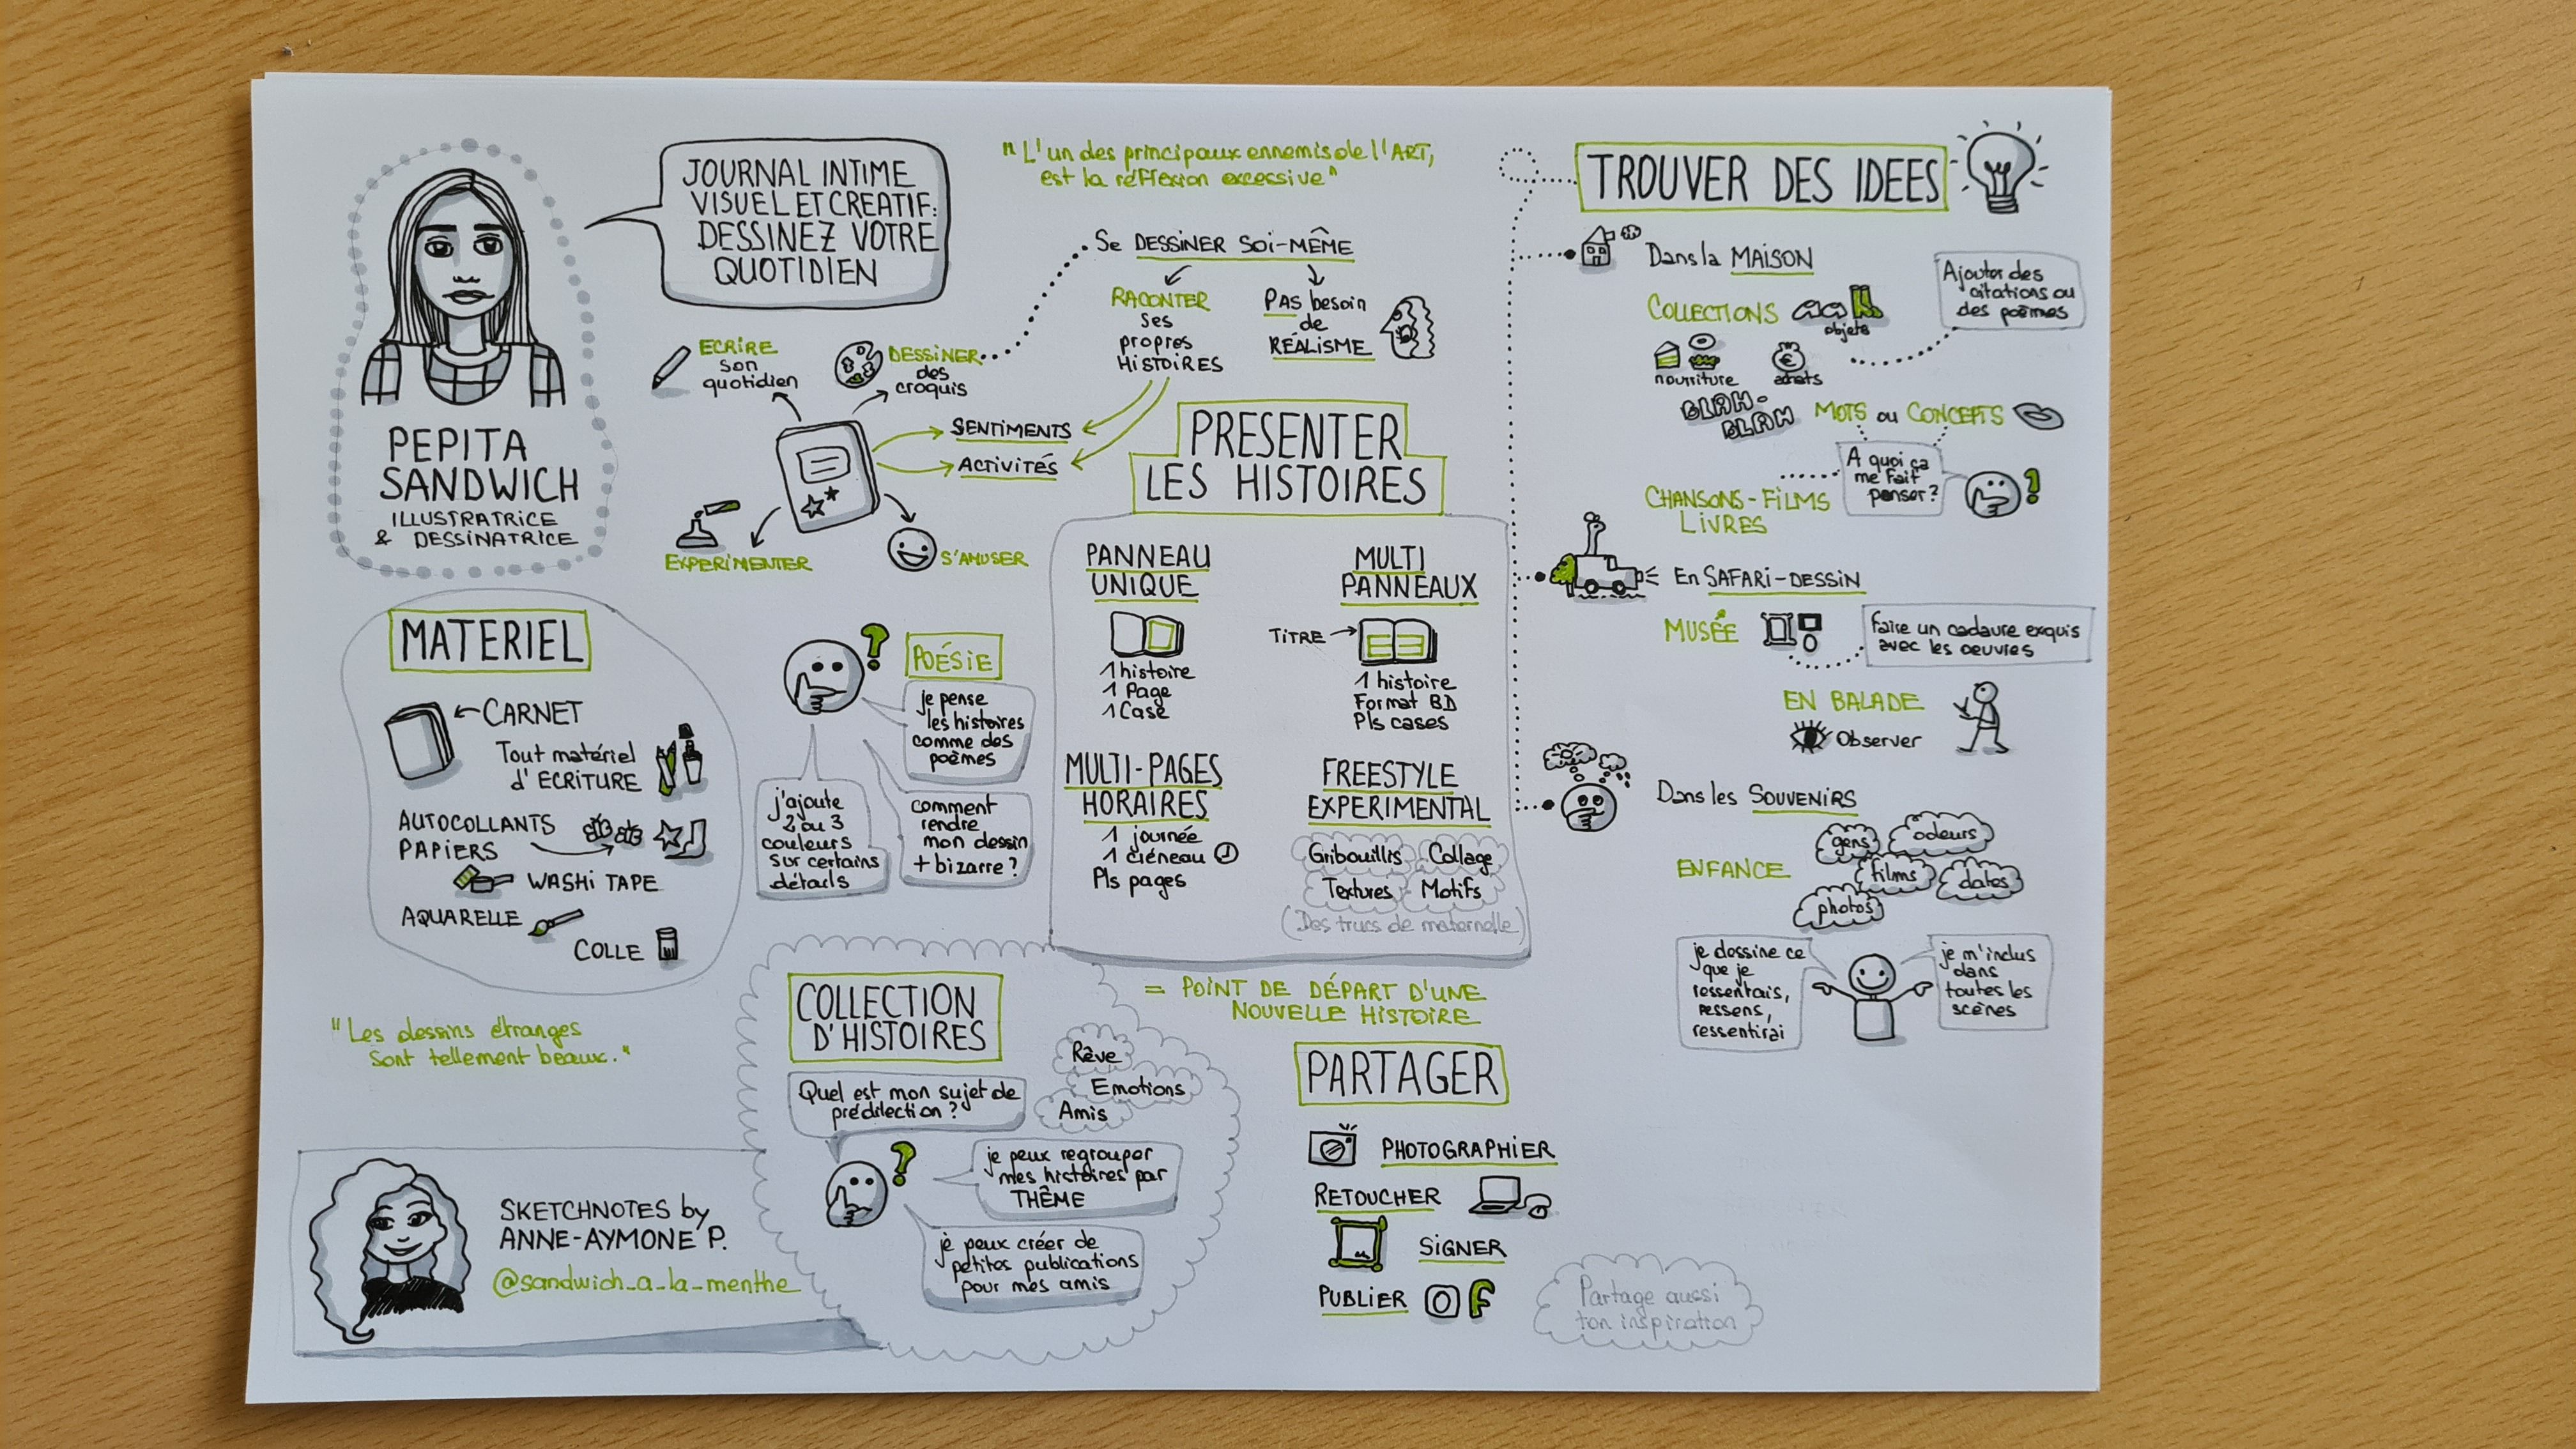 PEPITA
SANDWICH
ILLUSTRATRICE
& DESSINATRICE
JOURNAL INTIME
VISUEL ET CREATIF:
DESSINEZ VOTRE
QUOTIDIEN
"L'un des principaux ennemis de l'ART,
est la réflexion excessive"
Se DESSINER SOI-MÊME
RACONTER
ses
propres
HISTOIRES
PAS besoin
de
RÉALISME
ECRIRE
son
quotidien
DESSINER
des
croquis
SENTIMENTS
ACTIVITÉS
EXPERIMENTER
S'AMUSER
MATERIEL
CARNET
Tout matériel
d'ECRITURE
AUTOCOLLANTS
PAPIERS
WASHI TAPE
AQUARELLE
COLLE
"Les dessins étranges
sont tellement beaux."
POÉSIE
je pense
les histoires
comme des
poèmes
j'ajoute
2 ou 3
couleurs
sur certains
détails
comment
rendre
mon dessin
+ bizarre ?
PRESENTER
LES HISTOIRES
PANNEAU
UNIQUE
1 histoire
1 Page
1 Case
MULTI
PANNEAUX
TITRE
1 histoire
Format BD
Pls cases
MULTI-PAGES
HORAIRES
1 journée
1 créneau
Pls pages
FREESTYLE
EXPERIMENTAL
Gribouillis
Collage
Textures
Motifs
(Des trucs de maternelle)
COLLECTION
D'HISTOIRES
= POINT DE DÉPART D'UNE
NOUVELLE HISTOIRE
Quel est mon sujet de
prédilection ?
Rêve
Emotions
Amis
je peux regrouper
mes histoires par
THÈME
je peux créer de
petites publications
pour mes amis
PARTAGER
PHOTOGRAPHIER
RETOUCHER
SIGNER
PUBLIER
Partage aussi
ton inspiration
TROUVER DES IDEES
Dans la MAISON
COLLECTIONS
objets
nourriture
achats
Ajouter des
citations ou
des poèmes
BLAH-
BLAH
MOTS ou CONCEPTS
A quoi ça
me fait
penser ?
CHANSONS - FILMS
LIVRES
En SAFARI-DESSIN
MUSÉE
Faire un cadavre exquis
avec les oeuvres
EN BALADE
Observer
Dans les SOUVENIRS
ENFANCE
gens
odeurs
films
dates
photos
je dessine ce
que je
ressentais,
ressens,
ressentirai
je m'inclus
dans
toutes les
scènes
SKETCHNOTES by
ANNE-AYMONE P.
@sandwich_a_la_menthe